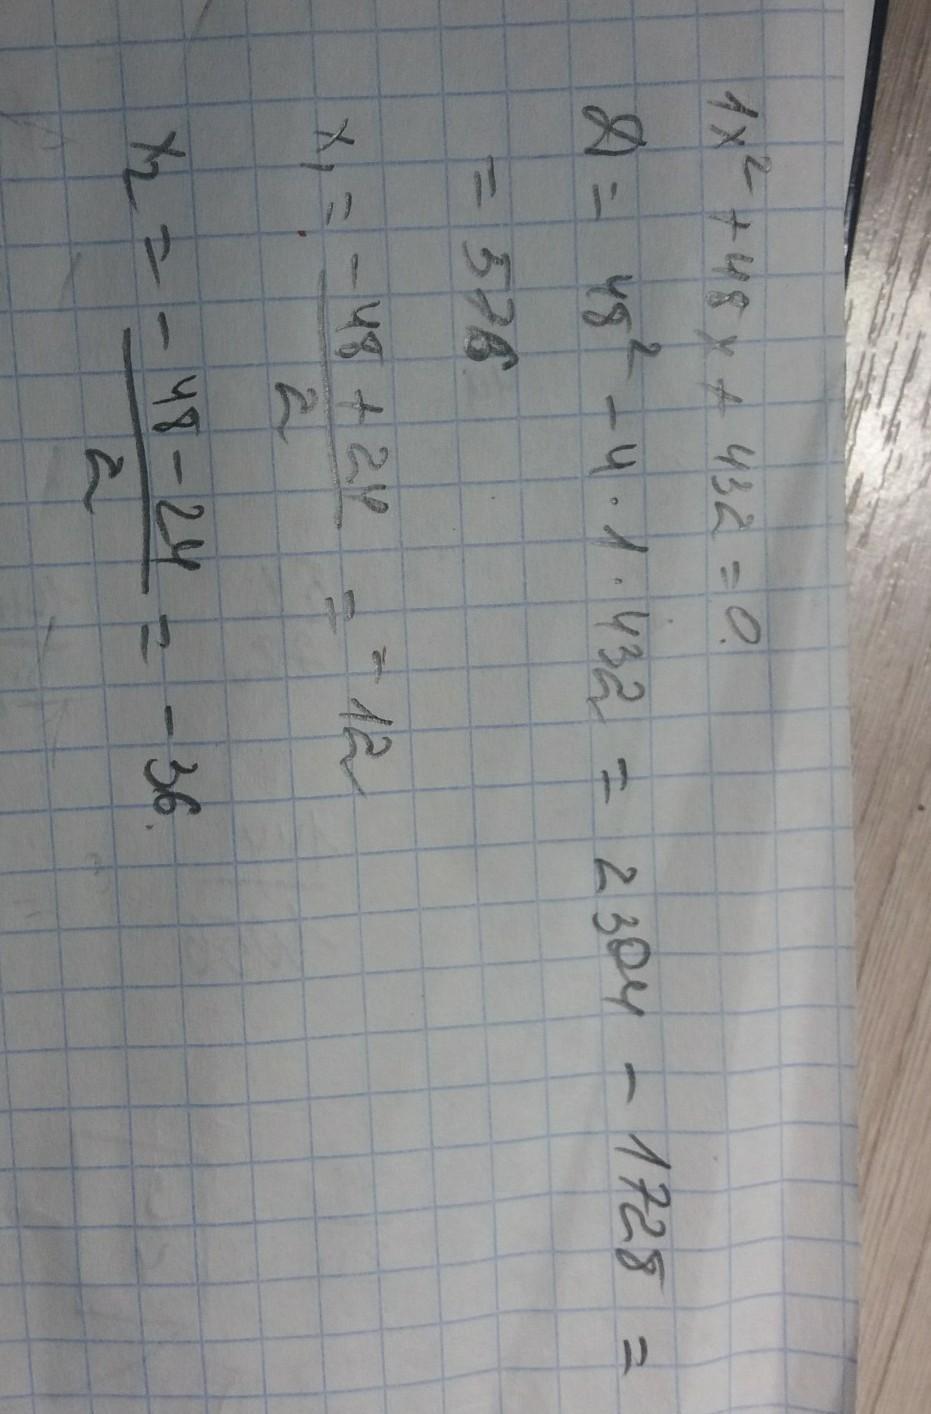 1x² + 48x + 432 = 0.
D = 48² - 4 · 1 · 432 = 2304 - 1728 =
= 576
x₁ = (-48 + 24)/2 = -12
x₂ = (-48 - 24)/2 = -36.